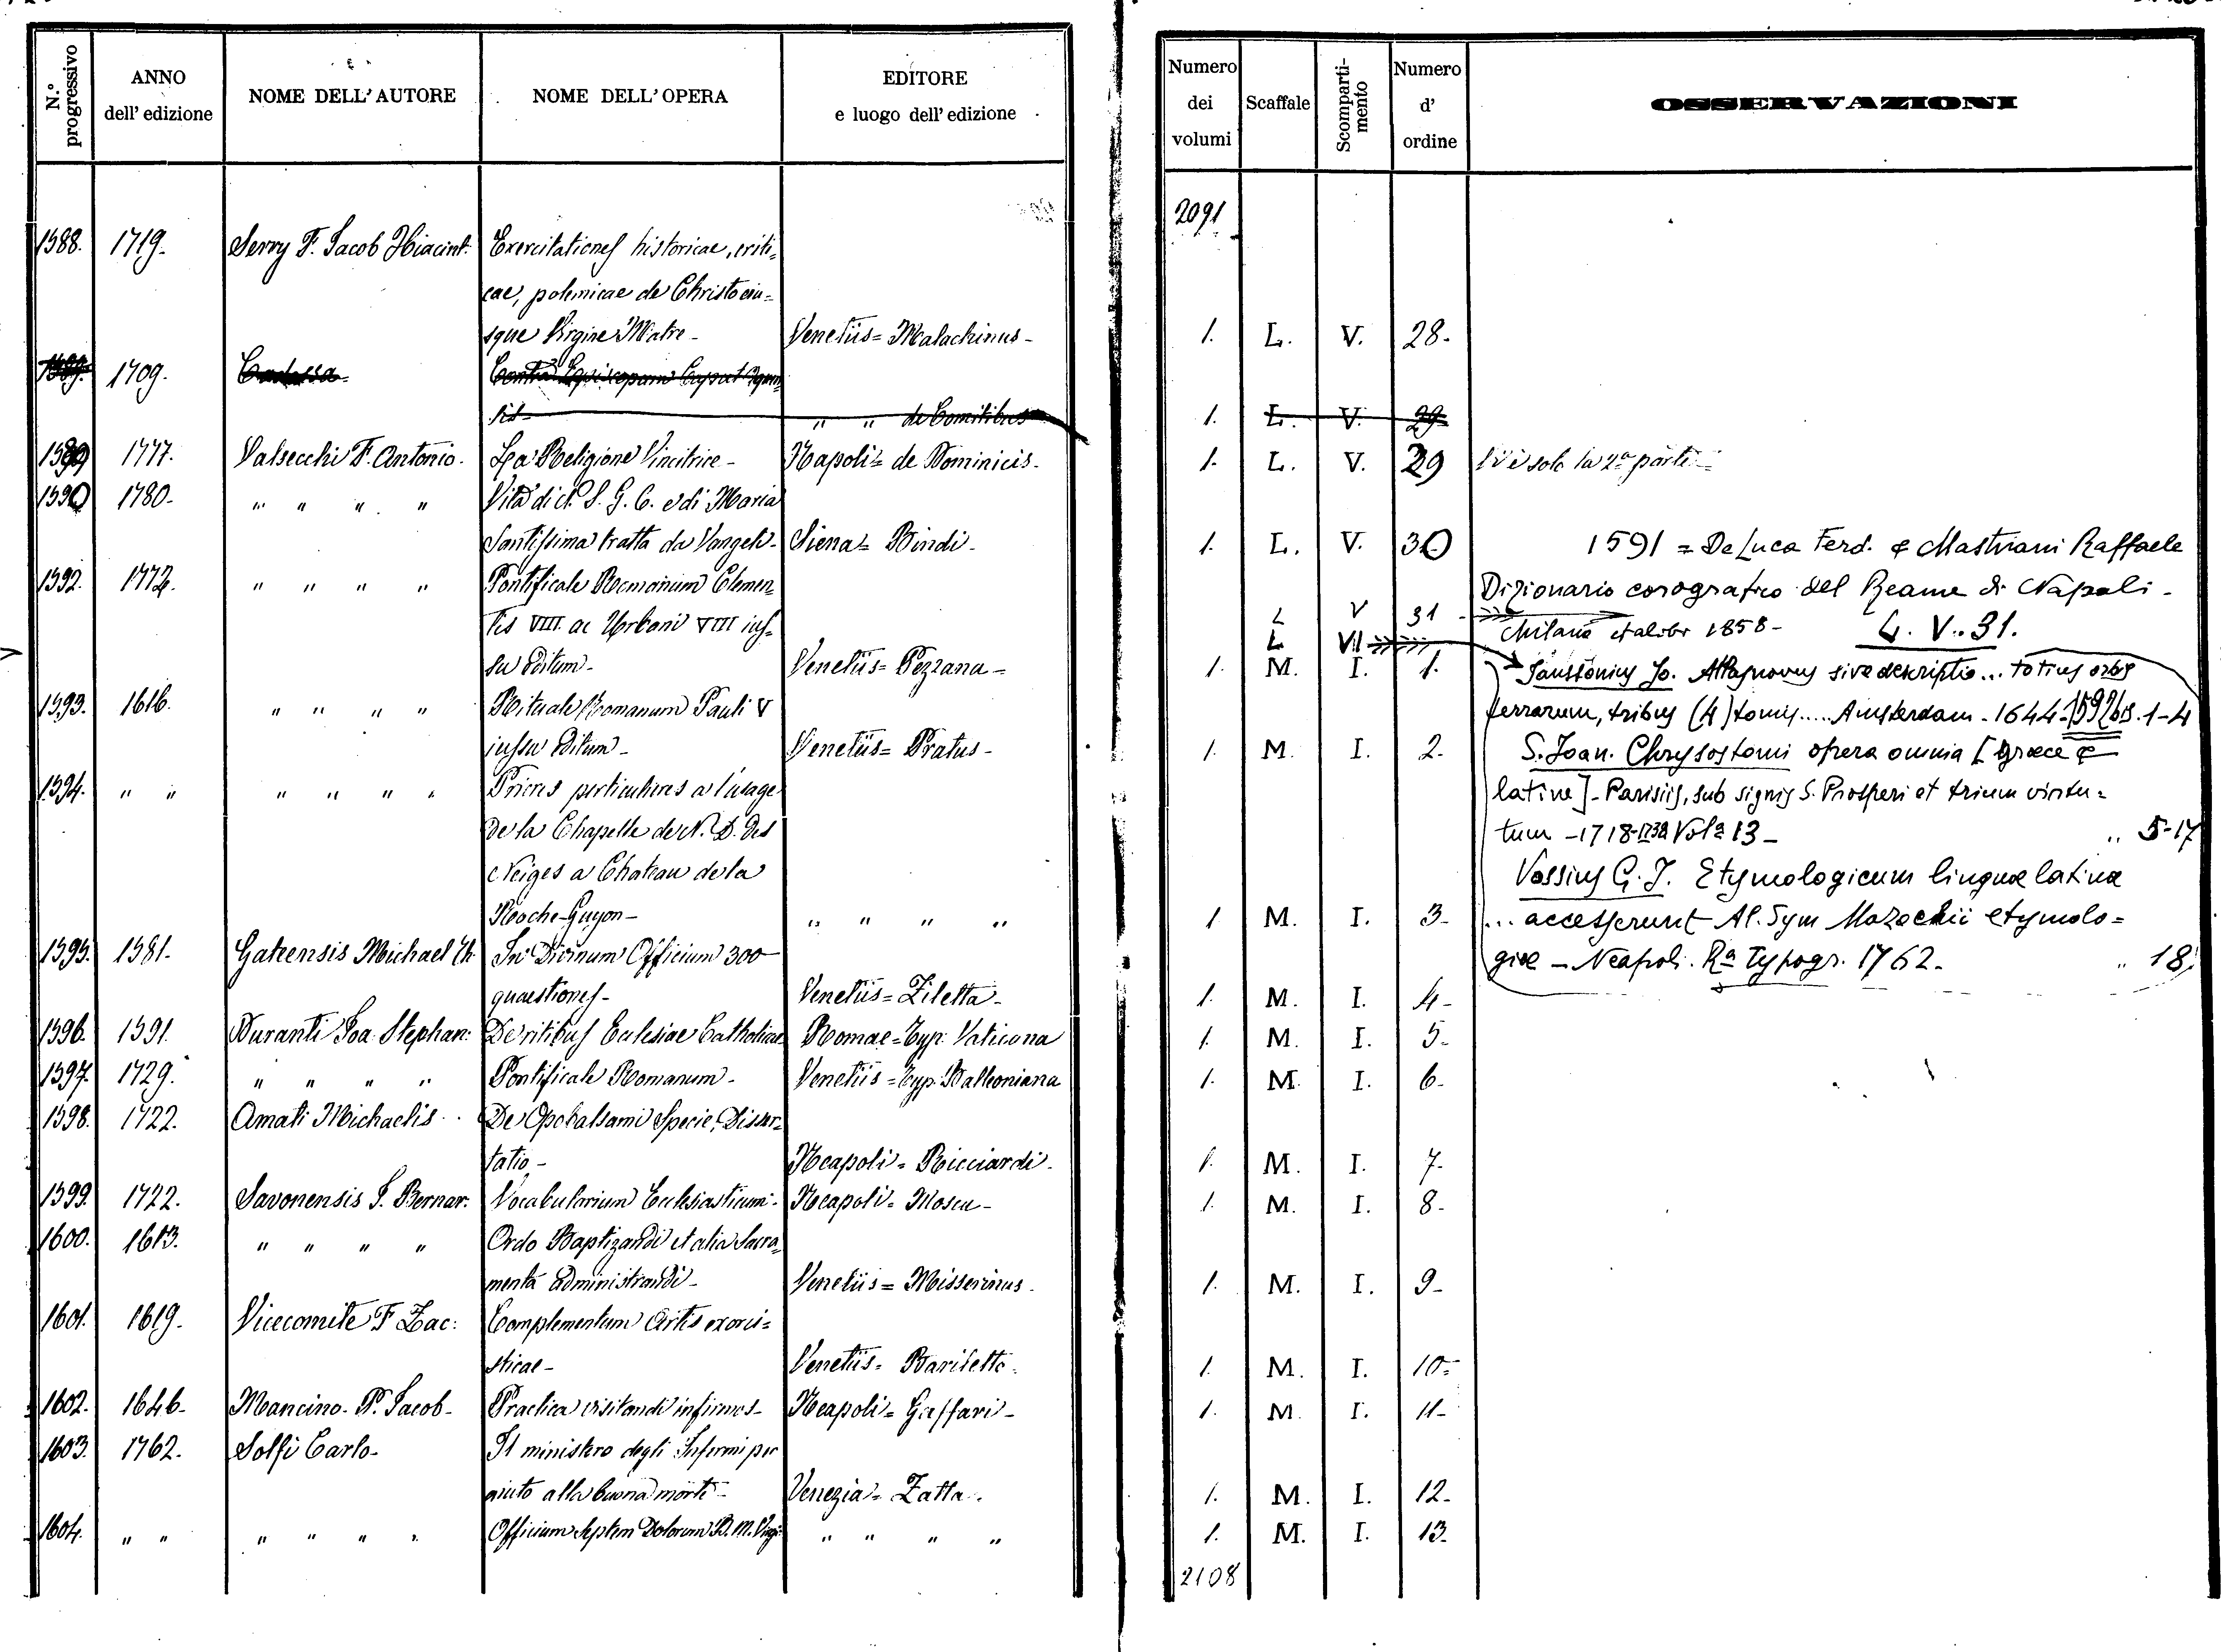 N.º progressivo
ANNO dell' edizione
NOME DELL' AUTORE
NOME DELL' OPERA
EDITORE e luogo dell' edizione
Numero dei volumi
Scaffale
Scomparti-mento
Numero d' ordine
OSSERVAZIONI
2091
1588. 1719. Serry F. Jacob Hiacint. Exercitationes historicae, criti=
cae, polemicae de Christo eiu=
sque Virgine Matre - Venetiis = Malachinus - 1. L. V. 28.
1709. Contra Episcopum
de Comitibus 1. L. V. 29
1589 1777. Valsecchi F. Antonio. La Religione Vincitrice - Napoli = de Dominicis. 1. L. V. 29 Vi è solo la 2a parte
1590 1780. " " " " Vita di N. S. G. C. e di Maria
Santissima tratta da Vangeli - Siena = Bindi. 1. L. V. 30
1591 = De Luca Ferd. e Mastriani Raffaele
Dizionario corografico del Reame di Napoli -
L V 31
Milano 1858 - L. V. 31.
L VII
1592. 1772. " " " " Pontificale Romanum Clemen=
tis VIII. ac Urbani VIII ius=
su editum - Venetiis = Pezzana - 1. M. I. 1.
Janssonius Jo. Atlas novus sive descriptio ... totius orbis
terrarum, tribus (4) tomis ..... Amsterdam - 1644 - 1-4
1593. 1616. " " " " Rituale Romanum Pauli V
iussu editum - Venetiis = Pratus - 1. M. I. 2.
S. Joan. Chrysostomi opera omnia [graece e
latine] - Parisiis, sub signis S. Prosperi et trium virtu=
tum - 1718-1738 Vol. 13 - " 5-17
1594. " " " " " " Prieres particulieres a l'usage
de la Chapelle de N. D. des
Neiges a Chateau de la
Roche-Guyon - " " " " 1 M. I. 3.
Vossius G. J. Etymologicum linguae latinae
... accesserunt Al. Sym Mazochii etymolo=
giae - Neapoli. Ra Typogr. 1762. " 18
1595. 1581. Michael In Divinum Officium 300
quaestiones - Venetiis = Ziletta - 1. M. I. 4.
1596. 1591. Duranti Joa. Stephan: De ritibus Eclesiae Catholicae Romae = Typ: Vaticana 1. M. I. 5.
1597. 1729. " " " " Pontificale Romanum - Venetiis = Typ: Balleoniana 1. M. I. 6.
1598. 1722. Amati Michaelis De Opobalsami Specie, Disser=
tatio - Neapoli = Ricciardi. 1. M. I. 7.
1599. 1722. Savonensis S. Bernar. Vocabularium Eclesiasticum - Neapoli = Mosca - 1. M. I. 8.
1600. 1613. " " " " Ordo Baptizandi et alia Sacra=
menta administrandi - Venetiis = Misserinus. 1. M. I. 9.
1601. 1619. Vicecomite F Zac: Complementum Artis exorci=
sticae - Venetiis = Bariletto. 1. M. I. 10.
1602. 1646. Mancino. P. Jacob - Practica visitandi infirmos - Neapoli = Gaffari - 1. M. I. 11.
1603. 1762. Solfi Carlo - Il ministero degli Infermi per
aiuto alla buona morte - Venezia = Zatta. 1. M. I. 12.
1604. " " " " " " Officium Septem Dolorum B. M. Virg. " " " " 1. M. I. 13.
2108